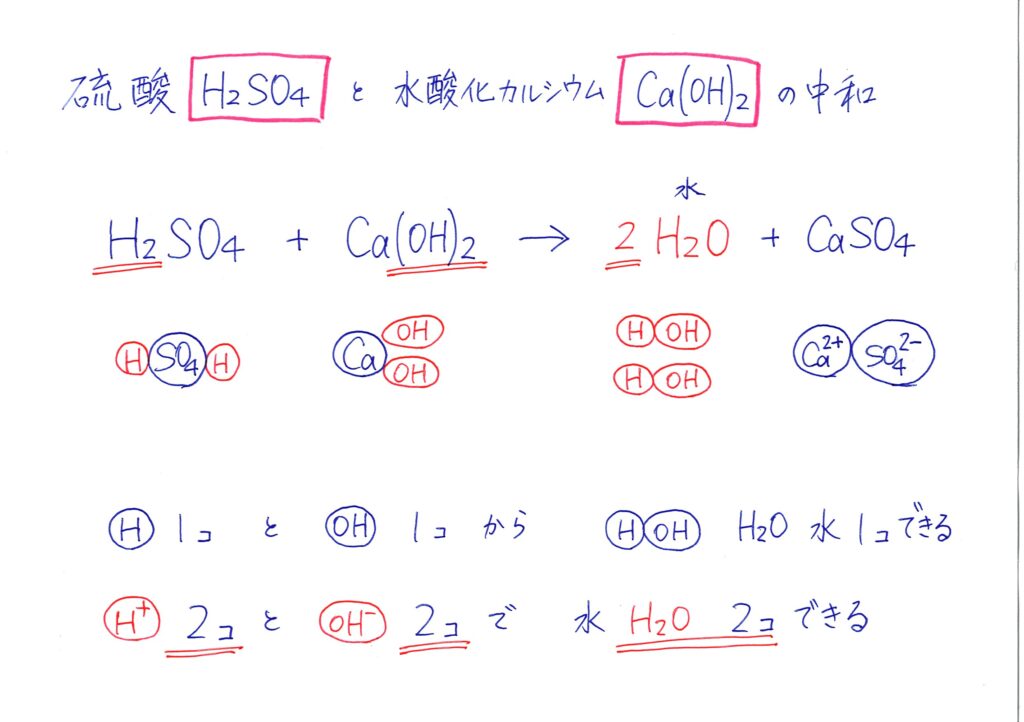 硫酸 H₂SO₄ と 水酸化カルシウム Ca(OH)₂ の中和
水
H₂SO₄ + Ca(OH)₂ → 2 H₂O + CaSO₄
H SO₄ H Ca OH OH H OH H OH Ca²⁺ SO₄²⁻
H 1コ と OH 1コ から H OH H₂O 水 1コできる
H⁺ 2コ と OH⁻ 2コ で 水 H₂O 2コ できる